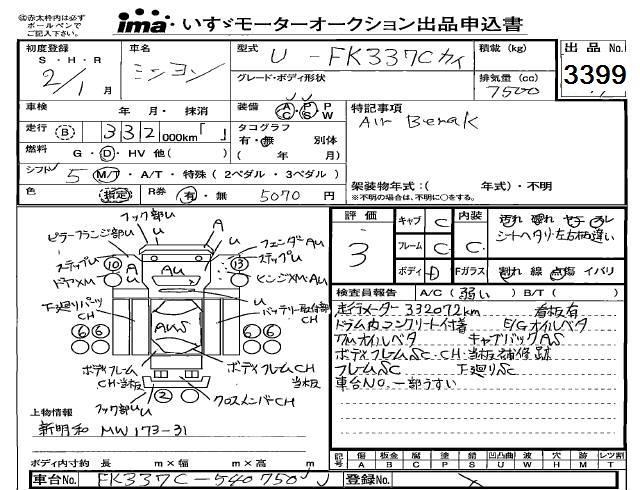 ㊟赤太枠内は必ず
ボールペンで
ご記入下さい。
ima いすゞモーターオークション出品申込書
初度登録 車名 型式 積載 (kg) 出品 No.
S・H・R
2/1 月
ミニヨン
U-FK337Cカイ
グレード・ボディ形状
排気量 (cc)
7500
3399
車検 年 月・ 抹消
装備 AC PS PW
特記事項
Air Berak
走行 B 332 000km「 」
タコグラフ
有・無 別体
( 年 月)
燃料 G・D・HV 他( )
シフト 5 M/T・A/T・特殊 ( 2ペダル・3ペダル )
架装物年式:( 年式)・不明
※不明の場合は、不明に○をする。
色 指定 R券 有・無 5070 円
評価 3
キャブ C
フレーム C
ボディ D
内装 C
Fガラス
汚れ 破れ ヤニ スレ
シートヘタリ 左右柄違い
割れ 線 点傷 イバリ
フック部U
ピラーフランジ部U
ステップU
ドアXM
下廻りパーツCH
フェンダーAU
ステップU
ヒンジXM・AU
バッテリー取付部CH
A
U
AU
AUS
10
13
6 6
6 6
2
ボディフレム
CH・当板
ボディフレムCH
当板
フック部U
クロスメンバーCH
検査員報告 A/C ( 弱い ) B/T ( )
走行メーター332072km 看板有
ドラム内コンクリート付着 E/Gオイルベタ
T/Mオイルベタ キャブバックAS
ボディフレムSC・CH・当板補修跡
フレームSC 下廻りSC
車台NO.一部うすい
上物情報
新明和 MW173-31
ボディ内寸約 長 m×幅 m×高 m
記号 傷 A 板金 B 腐 C 塗 P 錆 S 凹凸曲 U 波 W 穴 H 跡 M レツ割 T
車台No. FK337C-540750 登録No.